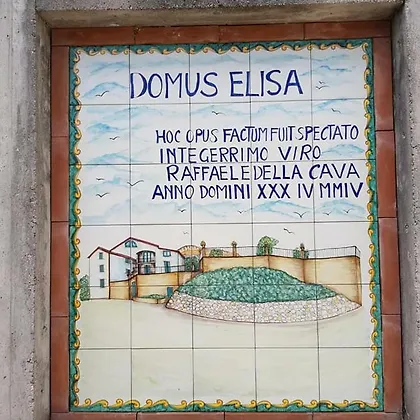 DOMUS ELISA
HOC OPUS FACTUM FUIT SPECTATO
INTEGERRIMO VIRO
RAFFAELE DELLA CAVA
ANNO DOMINI XXX IV MMIV